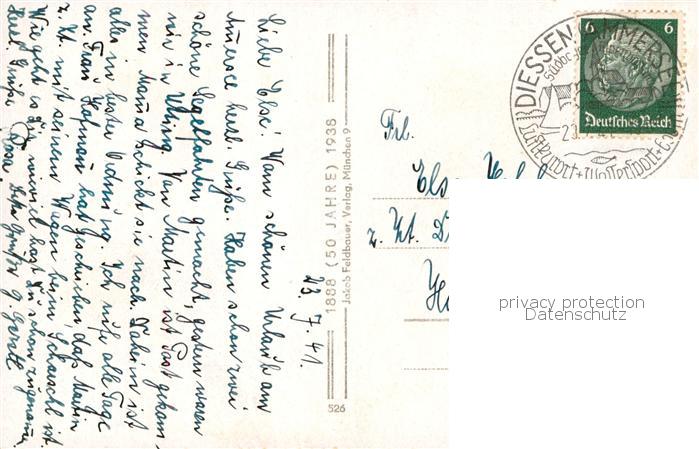 23. 7. 41.
Liebe Else! Vom schönen Urlaub am
Ammersee herzl. Grüße. Haben schon zwei
schöne Segelfahrten gemacht, gestern waren
wir in Utting. Von Martin ist Post gekom-
men Mama schickt sie nach. Daheim ist
alles in bester Ordnung. Ich rufe alle Tage
an. Frau Hofmann hat geschrieben, daß Martin
z. Zt. mit seinem Wagen beim ist.
Wie geht es Dir, wieviel hast Du schon zugenommen
Herzl. Grüße Rosa. Grüße G.
1888 (50 JAHRE) 1938
Jakob Feldbauer, Verlag, München 9
526
Frl.
z. Zt.
DIESSEN AMMERSEE
Luftkurort + Wassersport
6 6
Deutsches Reich
privacy protection
Datenschutz